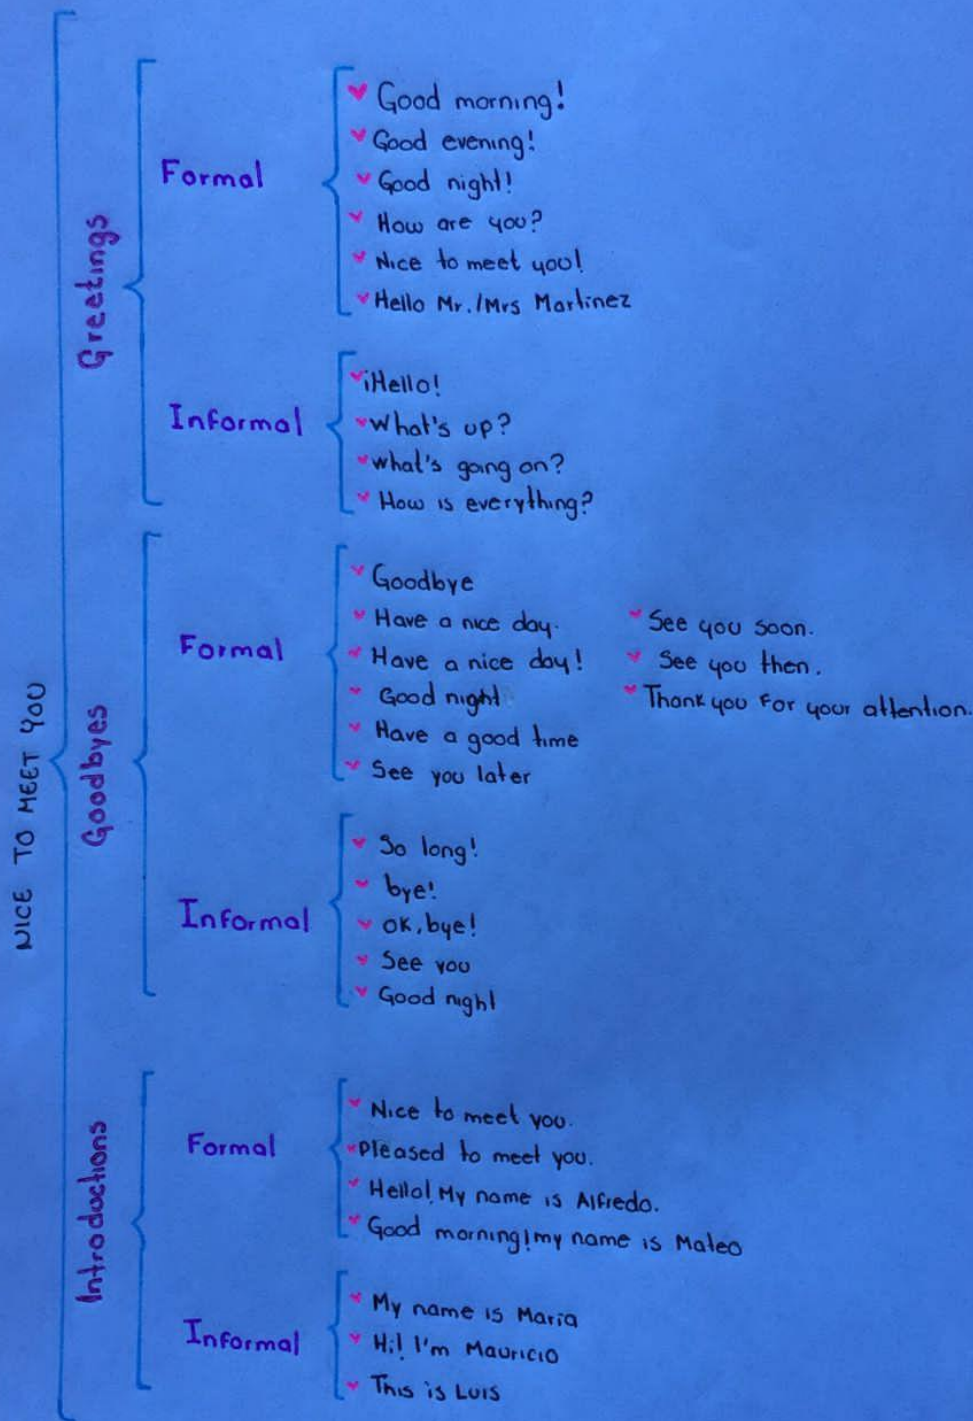 NICE TO MEET YOU
Greetings
Formal
Good morning!
Good evening!
Good night!
How are you?
Nice to meet you!
Hello Mr./Mrs Martinez
Informal
¡Hello!
What's up?
what's going on?
How is everything?
Goodbyes
Formal
Goodbye
Have a nice day.
Have a nice day!
Good night
Have a good time
See you later
See you soon.
See you then.
Thank you for your attention.
Informal
So long!
bye!
OK, bye!
See you
Good night
Introductions
Formal
Nice to meet you.
Pleased to meet you.
Hello! My name is Alfredo.
Good morning! my name is Mateo
Informal
My name is Maria
Hi! I'm Mauricio
This is Luis